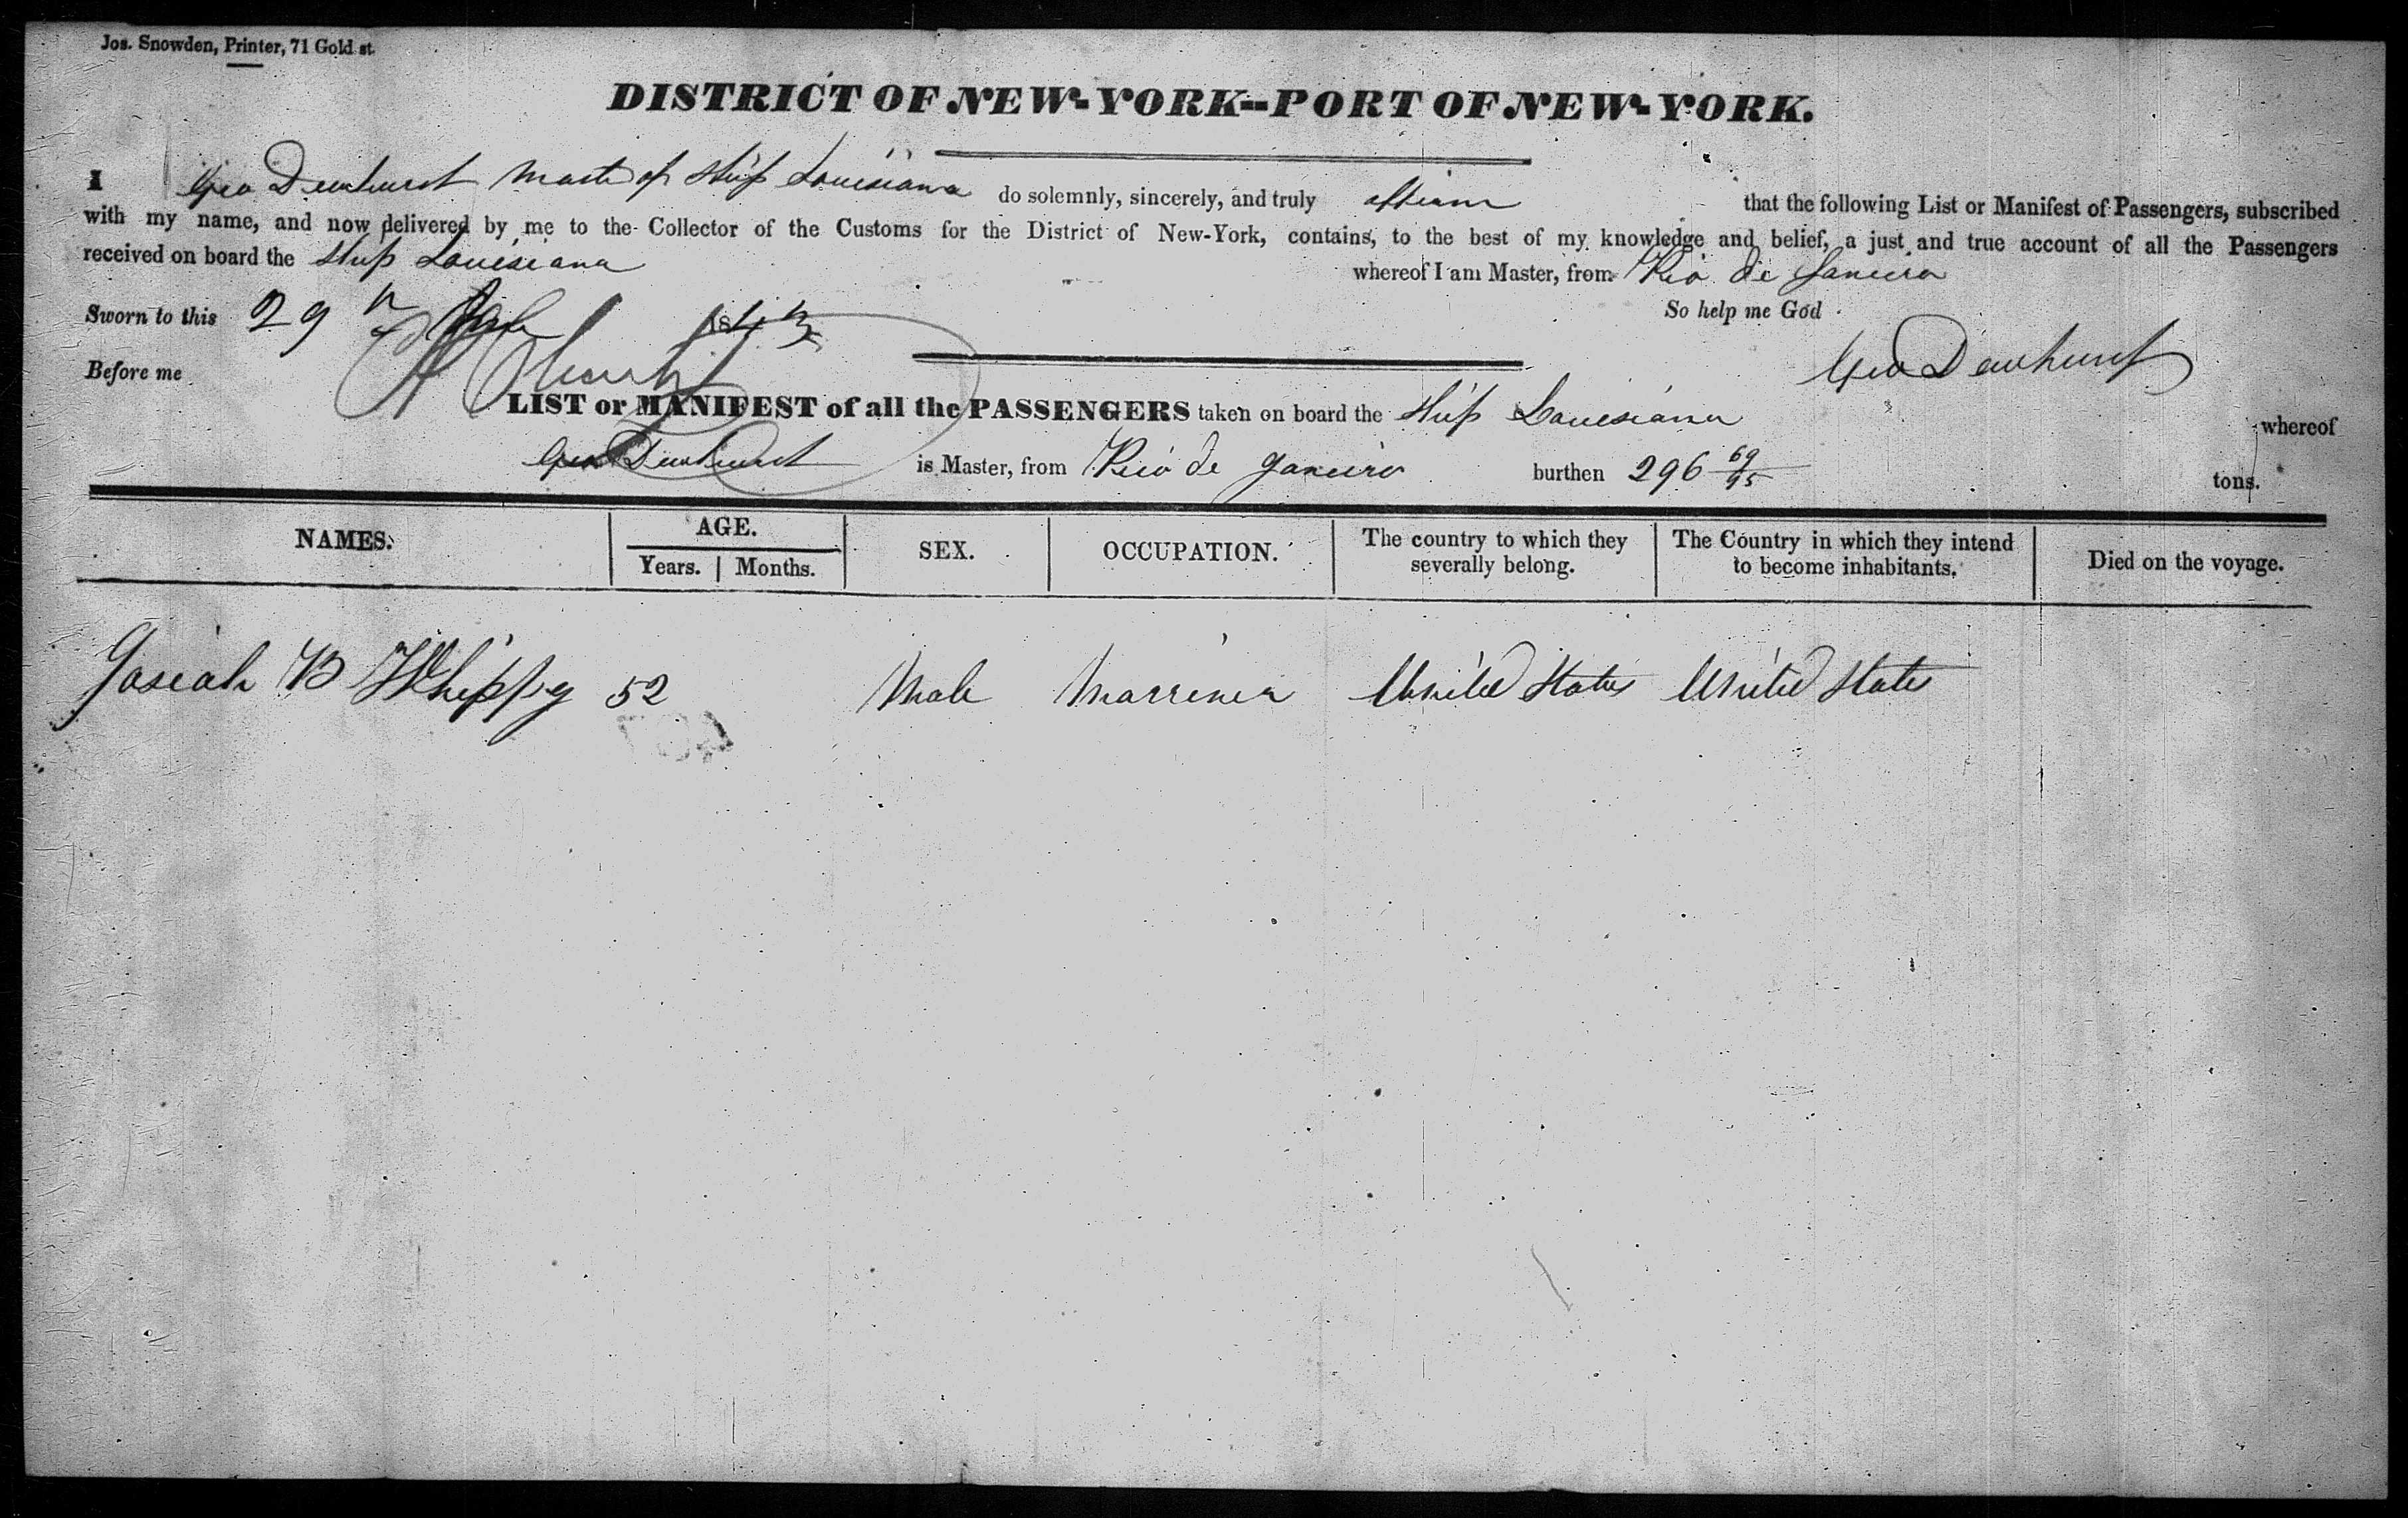 Jos. Snowden, Printer, 71 Gold st.
DISTRICT OF NEW-YORK--PORT OF NEW-YORK.
I Geo Dewhurst Master of Ship Louisiana do solemnly, sincerely, and truly affirm that the following List or Manifest of Passengers, subscribed
with my name, and now delivered by me to the Collector of the Customs for the District of New-York, contains, to the best of my knowledge and belief, a just and true account of all the Passengers
received on board the Ship Louisiana whereof I am Master, from Rio de Janeiro
Sworn to this 29 184 So help me God
Geo Dewhurst
Before me
LIST or MANIFEST of all the PASSENGERS taken on board the Ship Louisiana whereof
Geo Dewhurst is Master, from Rio de Janeiro burthen 296 69/95 tons.
NAMES. AGE. SEX. OCCUPATION. The country to which they severally belong. The Country in which they intend to become inhabitants. Died on the voyage.
Years. Months.
Josiah B Whippy 52 Male Marriner United States United States